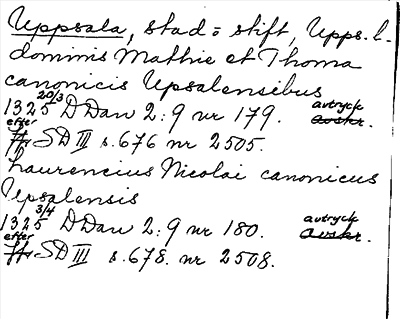 Uppsala, stad o stift, Upps. l.
dominis Mathie et Thoma
canonicis Upsalensibus
1325 20/3 DDan 2:9 nr 179. avtryck avskr.
efter ftr SD III s. 676 nr 2505.
Laurencius Nicolai canonicus
Upsalensis
1325 3/4 DDan 2:9 nr 180. avtryck avskr.
efter ftr SD III s. 678. nr 2508.